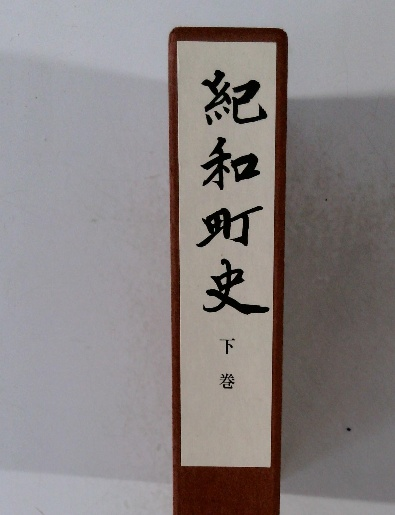 紀和町史
下巻